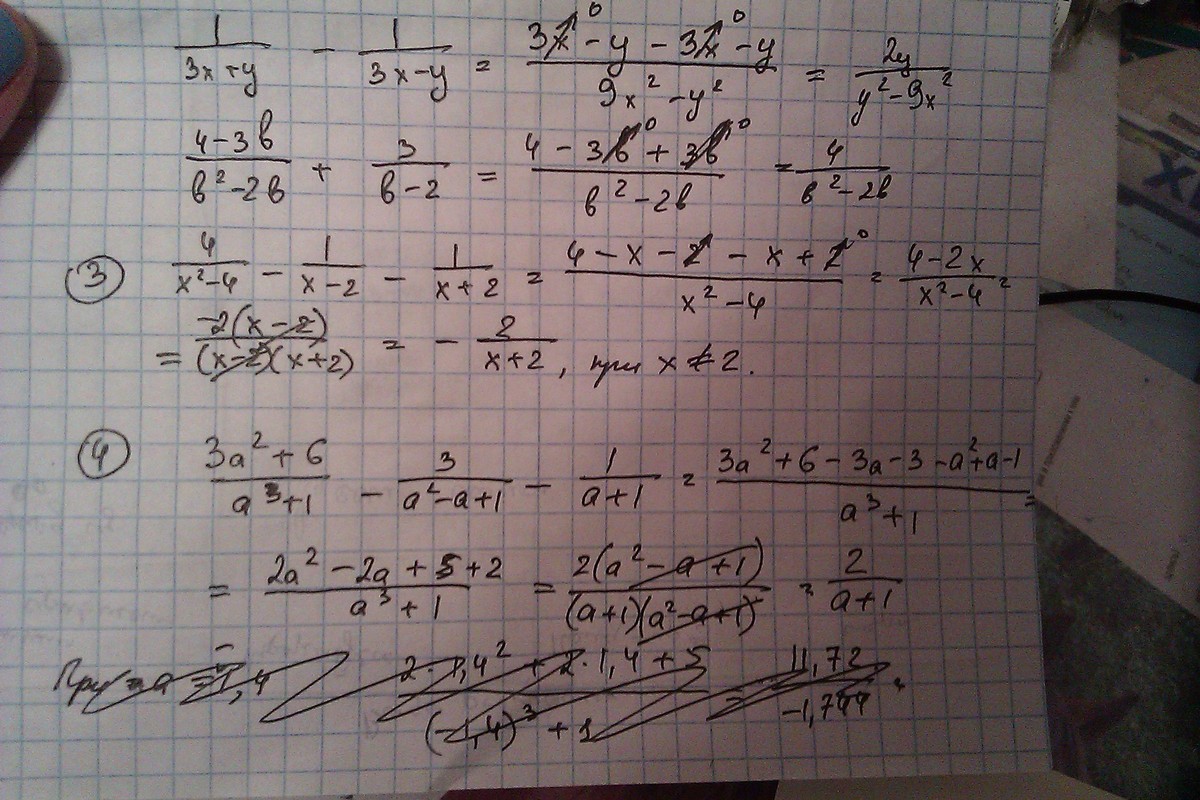 1/(3x+y) - 1/(3x-y) = (3x⁰ - y - 3x⁰ - y)/(9x² - y²) = 2y/(y² - 9x²)
(4-3в)/(в²-2в) + 3/(в-2) = (4 - 3в⁰ + 3в⁰)/(в² - 2в) = 4/(в²-2в)
③ 4/(x²-4) - 1/(x-2) - 1/(x+2) = (4 - x - 2 - x + 2⁰)/(x² - 4) = (4-2x)/(x²-4) =
= -2(x-2)/((x-2)(x+2)) = - 2/(x+2), при x ≠ 2.
④ (3a² + 6)/(a³+1) - 3/(a²-a+1) - 1/(a+1) = (3a² + 6 - 3a - 3 - a² + a - 1)/(a³+1) =
= (2a² - 2a + 5 + 2)/(a³ + 1) = 2(a² - a + 1)/((a+1)(a²-a+1)) = 2/(a+1)
При a = -1,4 (2·1,4² + 2·1,4 + 5)/((-1,4)³ + 1) = 11,72/-1,744 =